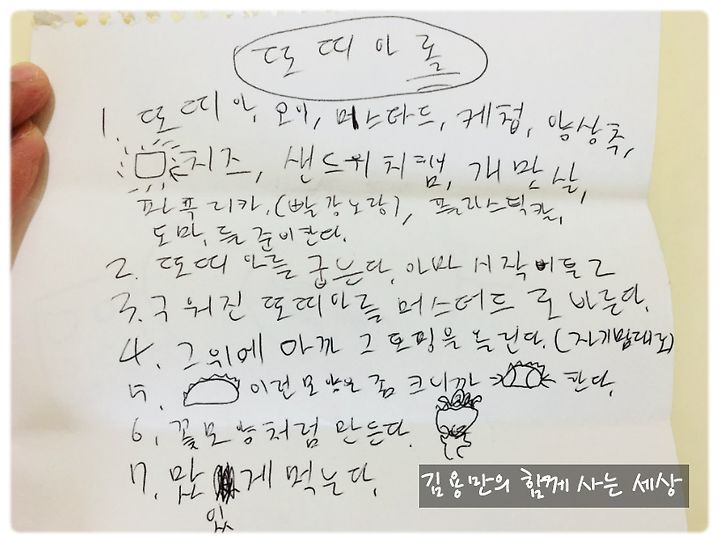 또띠아롤
1. 또띠아, 오이, 머스타드, 케첩, 양상추,
치즈, 샌드위치햄, 개맛살,
파푹리카, (빨강노랑), 플라스틱칼,
도마, 를 준비한다.
2. 또띠아를 굽는다.
3. 구워진 또띠아를 머스터드로 바른다.
4. 그위에 아까 그 토핑을 올린다. (자기맘대로)
5. 이런모양은 좀 크니까 한다.
6. 꽃모양처럼 만든다.
7. 맛있게 먹는다.
김용만의 함께 사는 세상